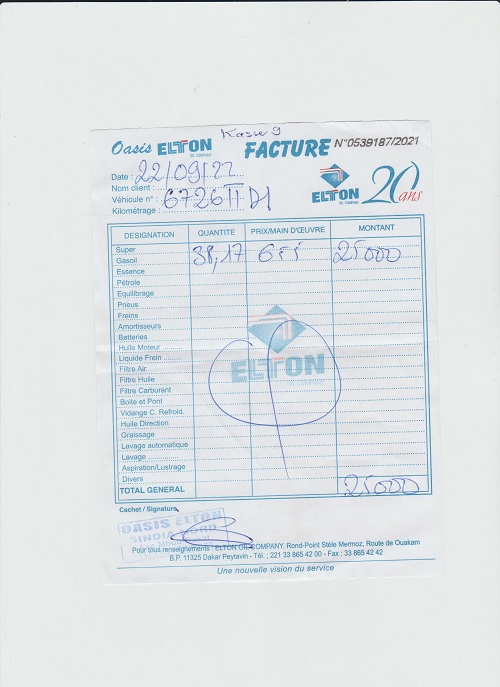 Kasse 9
Oasis ELTON OIL COMPANY FACTURE N°0539187/2021
Date : 22/09/22
Nom client :
Véhicule n° : 6726 TT D1
Kilométrage :
ELTON OIL COMPANY 20 ans
DESIGNATION QUANTITE PRIX/MAIN D'ŒUVRE MONTANT
Super
Gasoil 38,17 655 25000
Essence
Pétrole
Equilibrage
Pneus
Freins
Amortisseurs
Batteries
Huile Moteur
Liquide Frein
Filtre Air
Filtre Huile
Filtre Carburant
Boite et Pont
Vidange C. Refroid.
Huile Direction
Graissage
Lavage automatique
Lavage
Aspiration/Lustrage
Divers
TOTAL GENERAL 25000
ELTON OIL COMPANY
Cachet / Signature
OASIS ELTON
SINDIA NORD
Pour tous renseignements : ELTON OIL COMPANY, Rond-Point Stèle Mermoz, Route de Ouakam
B.P. 11325 Dakar Peytavin - Tél. : 221 33 865 42 00 - Fax : 33 865 42 42
Une nouvelle vision du service